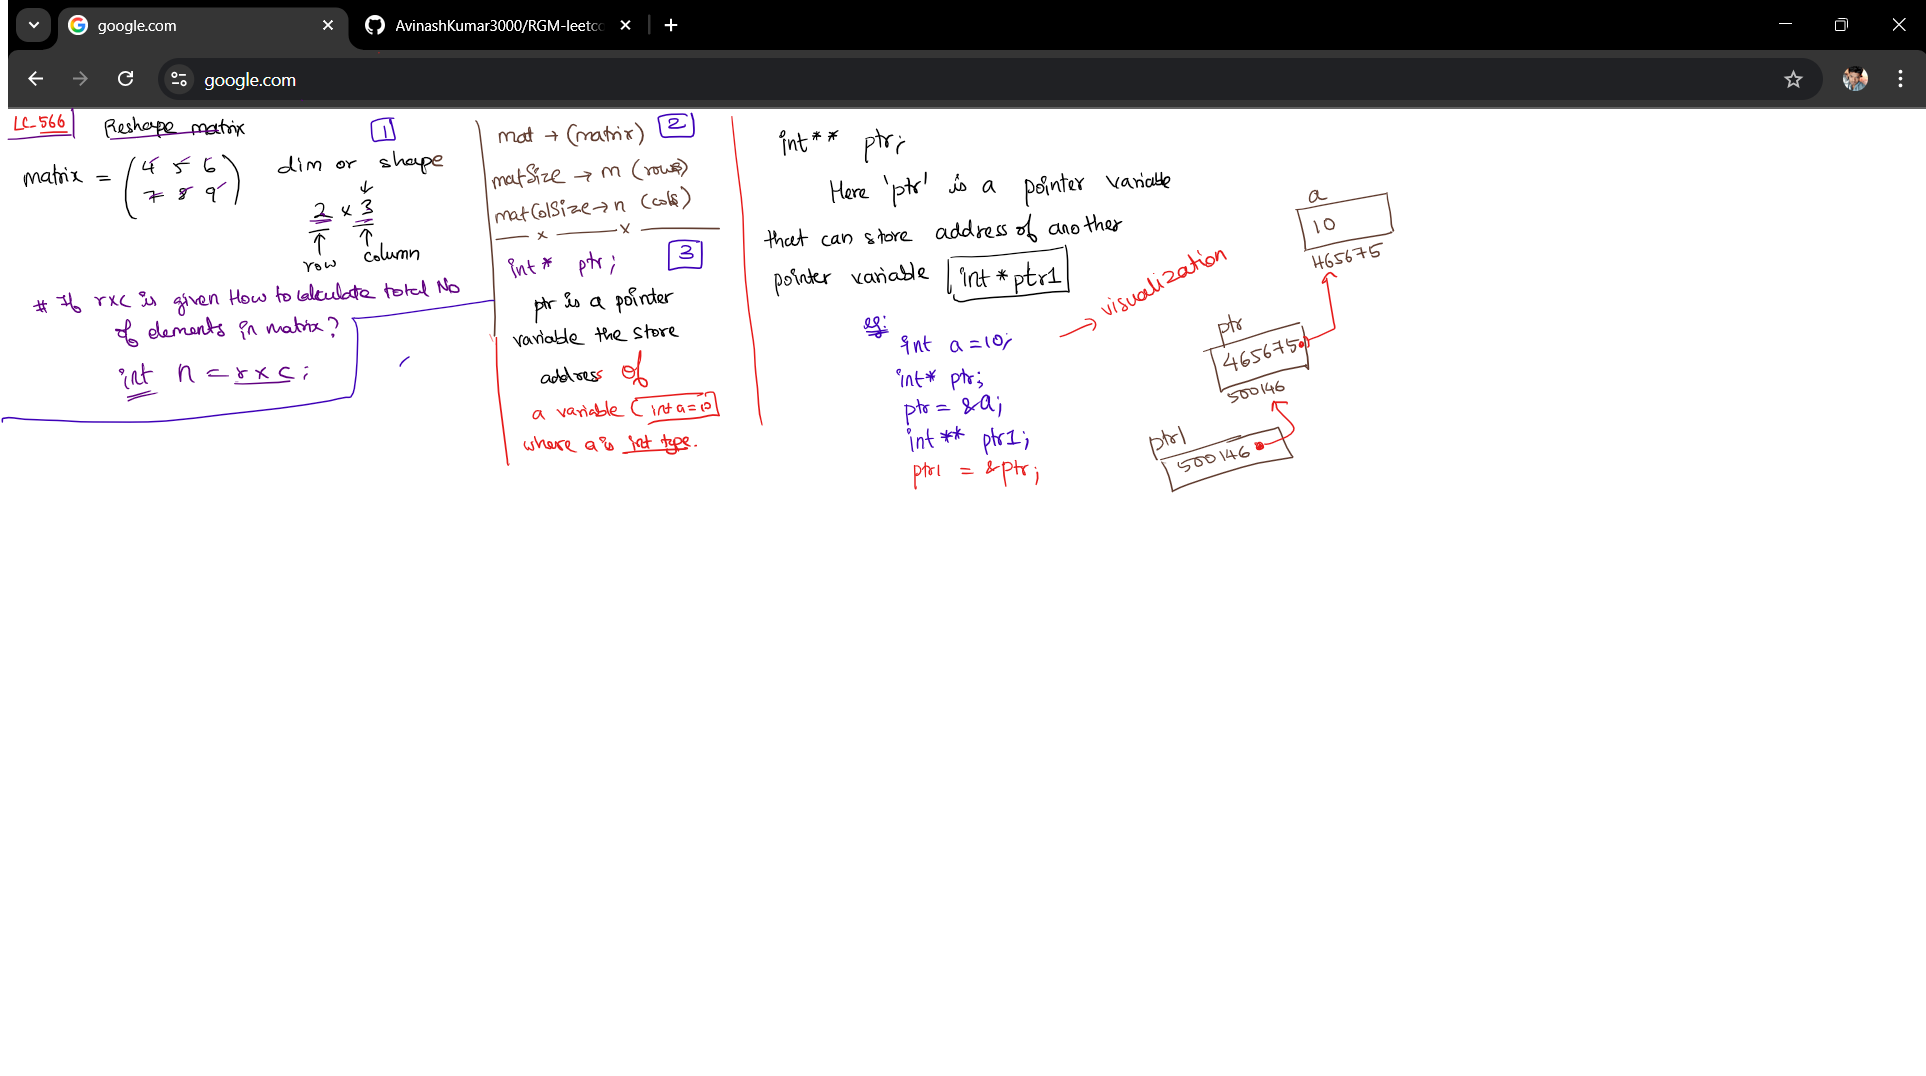 google.com
AvinashKumar3000/RGM-leetco
google.com
LC-566
Reshape matrix
1
matrix =
4 5 6
7 8 9
dim or shape
2 x 3
row
column
# If rxc is given How to calculate total No
of elements in matrix?
int n = r x c ;
mat → (matrix)
2
matSize → m (rows)
matColSize → n (cols)
x x
int* ptr;
3
ptr is a pointer
variable the store
address of
a variable (int a=10
where a is int type.
int** ptr;
Here 'ptr' is a pointer variable
that can store address of another
pointer variable int *ptr1
→ visualization
eg:
int a=10;
int* ptr;
ptr = &a;
int** ptr1;
ptr1 = &ptr;
a
10
465675
ptr
465675
500146
ptr1
500146